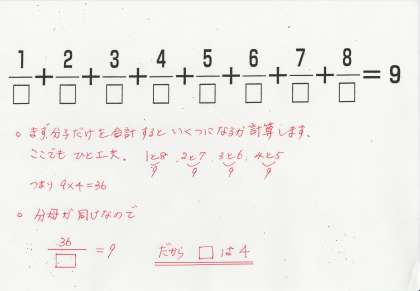 1/□ + 2/□ + 3/□ + 4/□ + 5/□ + 6/□ + 7/□ + 8/□ = 9
○ まず分子だけを合計するといくつになるか計算します、
ここでもひと工夫。 1と8 、2と7 、3と6、4と5
9 9 9 9
つまり 9×4=36
○ 分母が同じなので
36/□ = 9 だから □は4